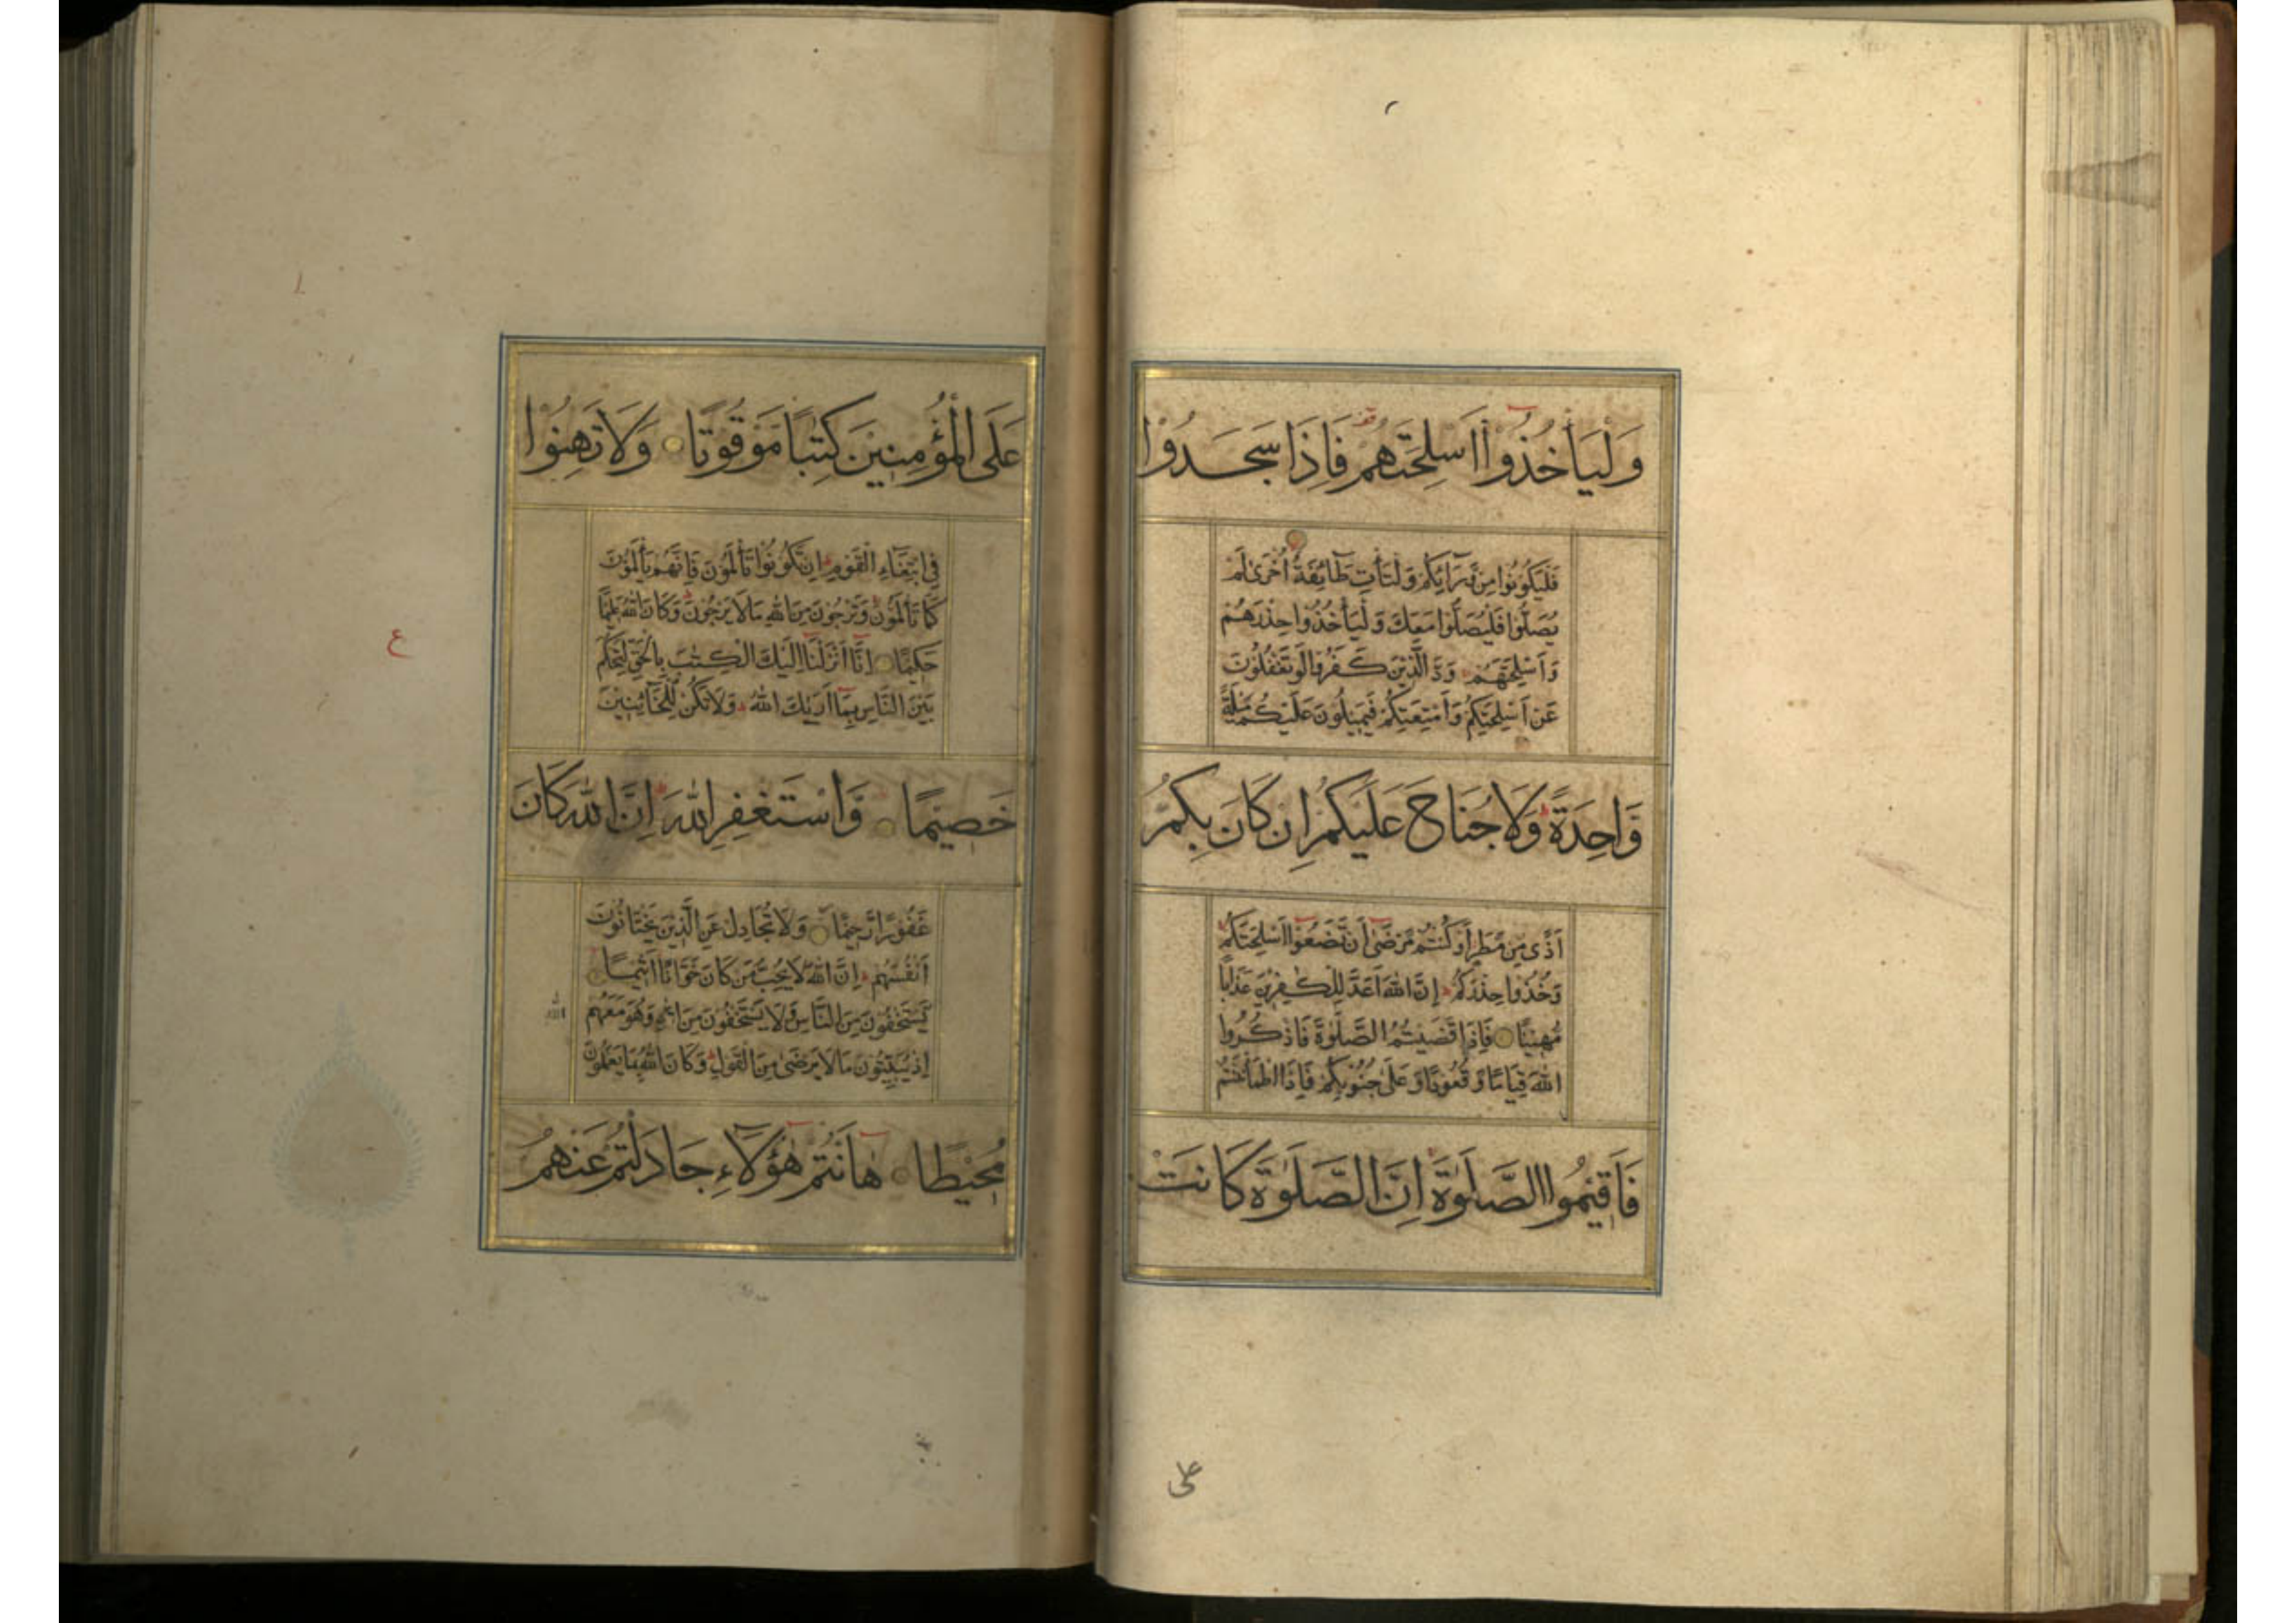 وَلْيَأْخُذُوْۤا اَسْلِحَتَهُمْ فَاِذَا سَجَدُوْا
فَلْيَكُوْنُوْا مِنْ وَّرَآئِكُمْ وَلْتَأْتِ طَآئِفَةٌ اُخْرٰى لَمْ
يُصَلُّوْا فَلْيُصَلُّوْا مَعَكَ وَلْيَأْخُذُوْا حِذْرَهُمْ
وَاَسْلِحَتَهُمْ وَدَّ الَّذِيْنَ كَفَرُوْا لَوْ تَغْفُلُوْنَ
عَنْ اَسْلِحَتِكُمْ وَاَمْتِعَتِكُمْ فَيَمِيْلُوْنَ عَلَيْكُمْ مَّيْلَةً
وَّاحِدَةً وَلَا جُنَاحَ عَلَيْكُمْ اِنْ كَانَ بِكُمْ
اَذًى مِنْ مَّطَرٍ اَوْ كُنْتُمْ مَّرْضٰۤى اَنْ تَضَعُوْۤا اَسْلِحَتَكُمْ
وَخُذُوْا حِذْرَكُمْ اِنَّ اللّٰهَ اَعَدَّ لِلْكٰفِرِيْنَ عَذَابًا
مُّهِيْنًا فَاِذَا قَضَيْتُمُ الصَّلٰوةَ فَاذْكُرُوا
اللّٰهَ قِيَامًا وَّقُعُوْدًا وَّعَلٰى جُنُوْبِكُمْ فَاِذَا اطْمَأْنَنْتُمْ
فَاَقِيْمُوا الصَّلٰوةَ اِنَّ الصَّلٰوةَ كَانَتْ
على
عَلَى الْمُؤْمِنِيْنَ كِتٰبًا مَوْقُوْتًا وَلَا تَهِنُوْا
فِى ابْتِغَاءِ الْقَوْمِ اِنْ تَكُوْنُوْا تَأْلَمُوْنَ فَاِنَّهُمْ يَأْلَمُوْنَ
كَمَا تَأْلَمُوْنَ وَتَرْجُوْنَ مِنَ اللّٰهِ مَا لَا يَرْجُوْنَ وَكَانَ اللّٰهُ عَلِيْمًا
حَكِيْمًا اِنَّاۤ اَنْزَلْنَاۤ اِلَيْكَ الْكِتٰبَ بِالْحَقِّ لِتَحْكُمَ
بَيْنَ النَّاسِ بِمَاۤ اَرٰىكَ اللّٰهُ وَلَا تَكُنْ لِّلْخَآئِنِيْنَ
خَصِيْمًا وَّاسْتَغْفِرِ اللّٰهَ اِنَّ اللّٰهَ كَانَ
غَفُوْرًا رَّحِيْمًا وَلَا تُجَادِلْ عَنِ الَّذِيْنَ يَخْتَانُوْنَ
اَنْفُسَهُمْ اِنَّ اللّٰهَ لَا يُحِبُّ مَنْ كَانَ خَوَّانًا اَثِيْمًا
يَّسْتَخْفُوْنَ مِنَ النَّاسِ وَلَا يَسْتَخْفُوْنَ مِنَ اللّٰهِ وَهُوَ مَعَهُمْ
اِذْ يُبَيِّتُوْنَ مَا لَا يَرْضٰى مِنَ الْقَوْلِ وَكَانَ اللّٰهُ بِمَا يَعْمَلُوْنَ
مُحِيْطًا هٰۤاَنْتُمْ هٰۤؤُلَاۤءِ جَادَلْتُمْ عَنْهُمْ
ع
الله